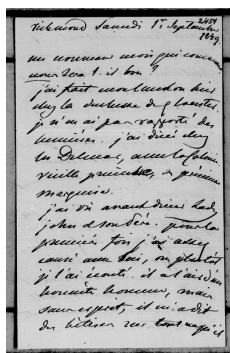 2484
Richmond Samedi 1er Septembre
1849
un nouveau mois qui commence
nous sera t. il bon ?
j'ai fait mon lundi hier
chez la duchesse de Glocester.
je n'en ai pas rapporté des
lumières. j'ai dîné chez
les Delmas, avec la
vieille princesse, la princesse
j'ai vu avant dîner Lady
john
première fois j'ai assez
causé avec lui, ou plutôt
je l'ai écouté. il a l'air d'un
honnête homme, mais
sans esprit, il m'a dit
des bêtises sur tout